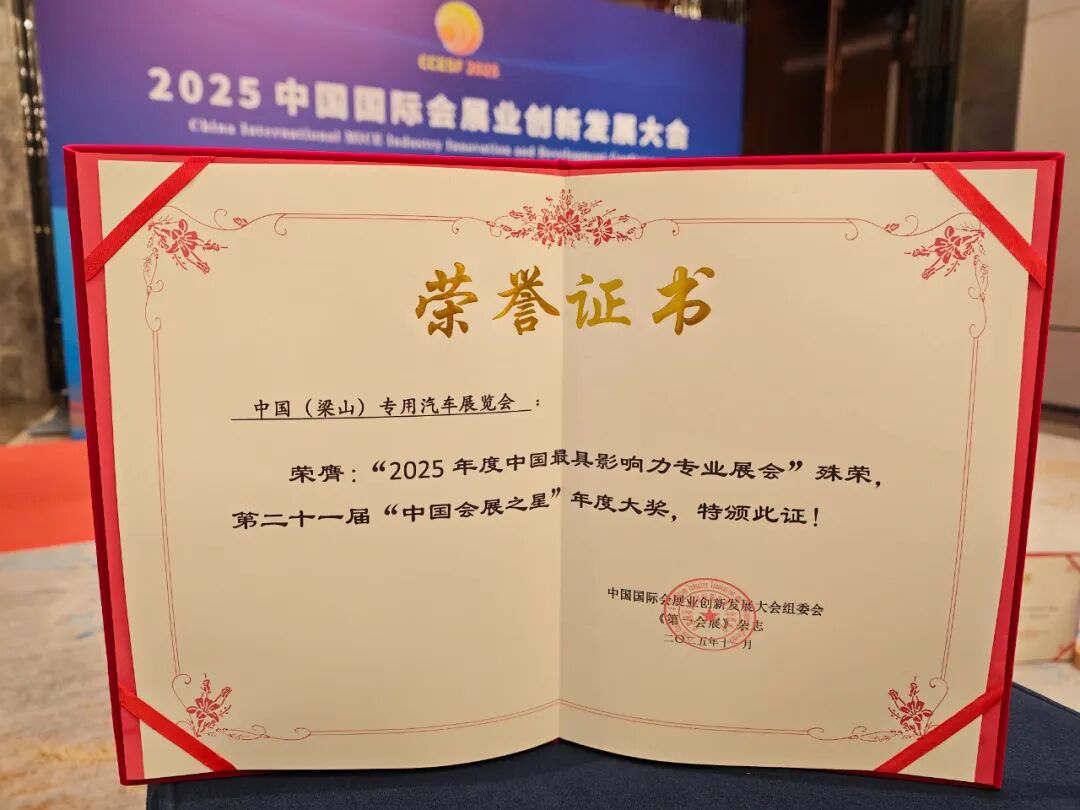 CCESF 2025
2025 中国国际会展业创新发展大会
China International MICE Industry Innovation and Development
荣誉证书
中国（梁山）专用汽车展览会：
荣膺：“2025 年度中国最具影响力专业展会”殊荣，
第二十一届“中国会展之星”年度大奖，特颁此证！
中国国际会展业创新发展大会组委会
《第一会展》杂志
二〇二五年十一月